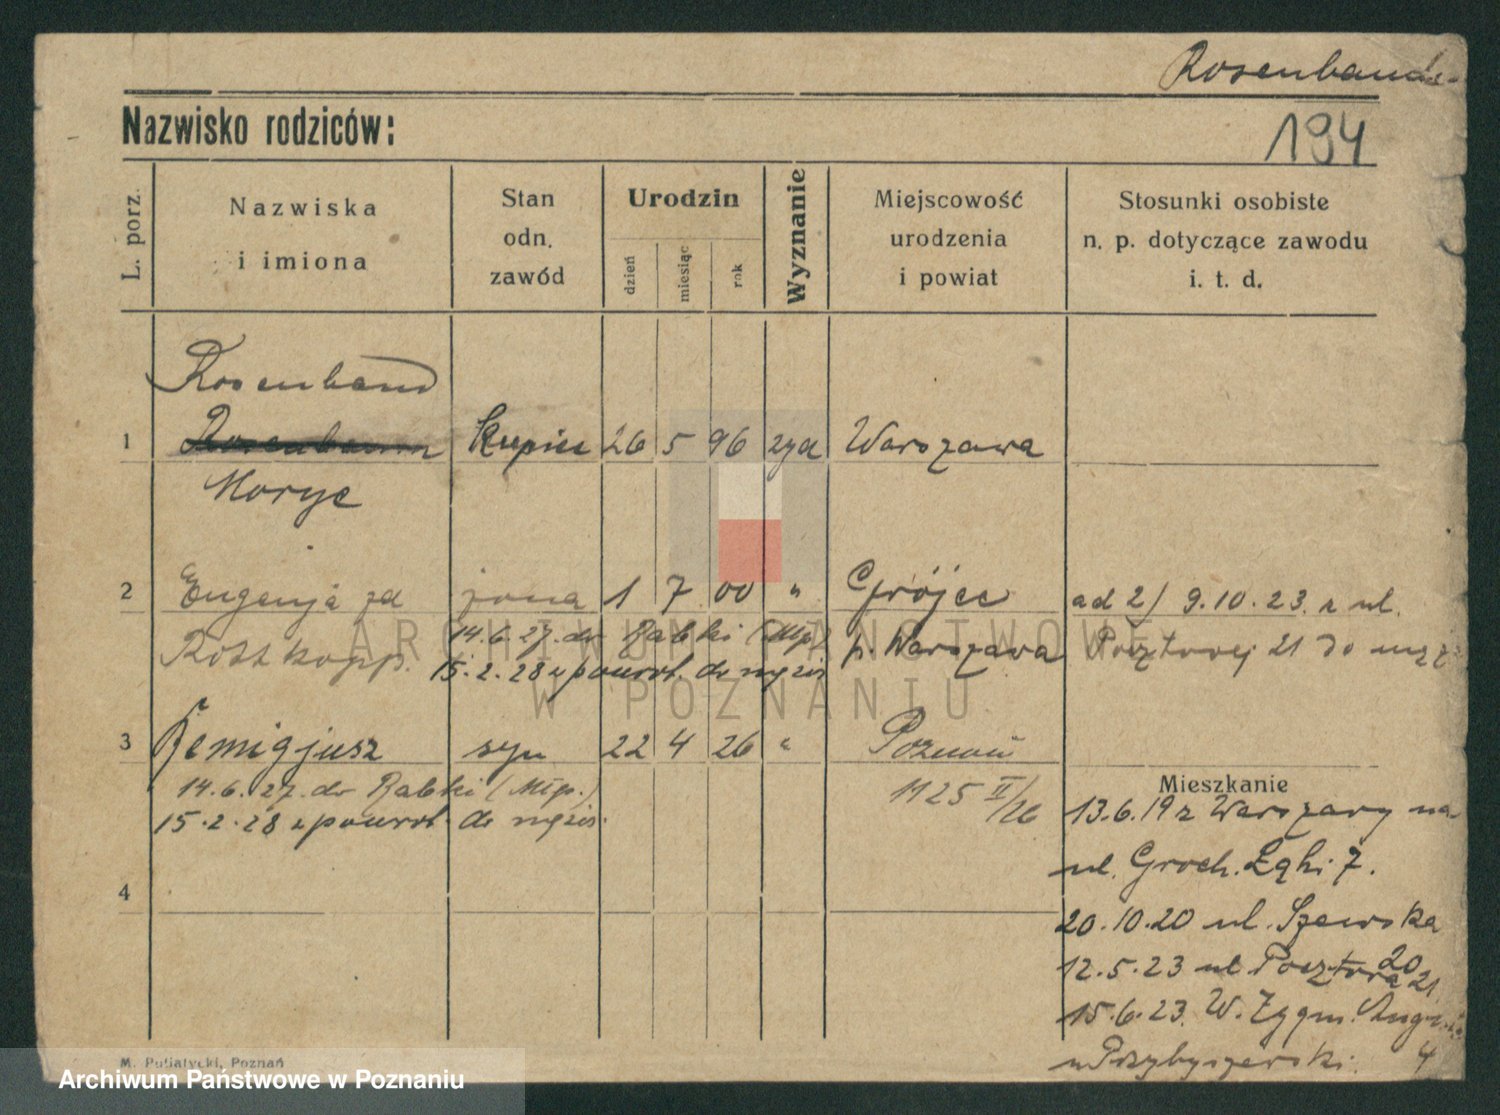 Rosenband
Nazwisko rodziców:
194
L. porz.
Nazwiska
i imiona
Stan
odn.
zawód
Urodzin
dzień
miesiąc
rok
Wyznanie
Miejscowość
urodzenia
i powiat
Stosunki osobiste
n. p. dotyczące zawodu
i. t. d.
Rosenband
1 Rosenbaum kupiec 26 5 96 żyd Warszawa
Moryc
2 Eugenja zd żona 1 7 00 " Grójec
Rottkopp. p. Warszawa
14.6.27. do Rabki (Młp.)
15.2.28 z powrot. do męża
ad 2/ 9.10.23. z ul.
Pocztowej 21 do męż
3 Remigjusz syn 22 4 26 " Poznań
14.6.27. do Rabki (Młp.)
15.2.28 z powrot. do męża.
1125 II/26
4
Mieszkanie
13.6.19 z Warszawy na
ul. Groch. Łąki 7.
20.10.20 ul. Szewska
20
12.5.23 ul Pocztowa 21
15.6.23. W. Zygm. Aug
u Przybyszewski. 4
M. Putiatycki, Poznań
ARCHIWUM PAŃSTWOWE
W POZNANIU
Archiwum Państwowe w Poznaniu